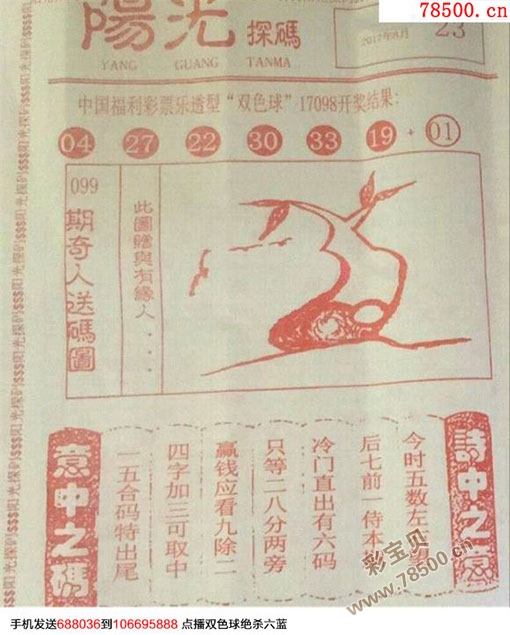 78500.cn
陽光探碼
YANG GUANG TANMA
2017年8月
23
中国福利彩票乐透型“双色球”17098开奖结果：
04 27 22 30 33 19 + 01
099期奇人送碼圖
此圖贈與有緣人...
詩中之意
今时五数左
后七前一侍本
冷门直出有六码
只等二八分两旁
赢钱应看九除二
四字加三可取中
一五合码特出尾
意中之碼
彩宝贝
www.78500.cn
手机发送688036到106695888 点播双色球绝杀六蓝